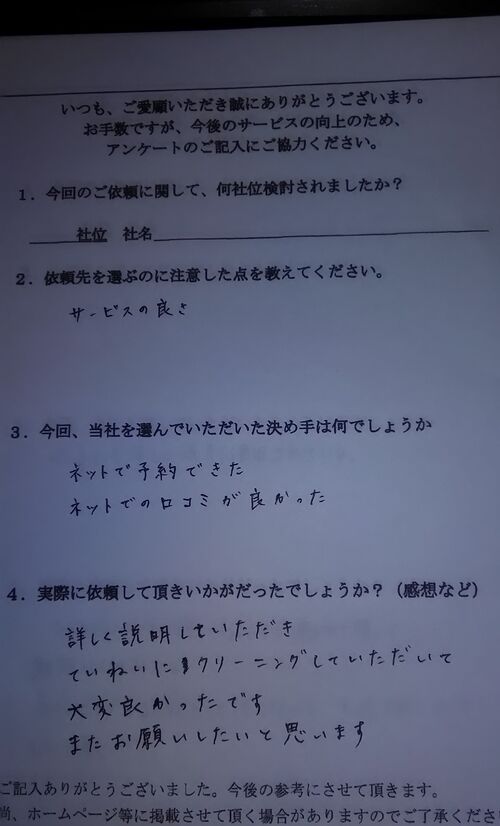 いつも、ご愛願いただき誠にありがとうございます。
お手数ですが、今後のサービスの向上のため、
アンケートのご記入にご協力ください。
1．今回のご依頼に関して、何社位検討されましたか？
社位 社名
2．依頼先を選ぶのに注意した点を教えてください。
サービスの良さ
3．今回、当社を選んでいただいた決め手は何でしょうか
ネットで予約できた
ネットでの口コミが良かった
4．実際に依頼して頂きいかがだったでしょうか？（感想など）
詳しく説明していただき
ていねいにクリーニングしていただいて
大変良かったです
またお願いしたいと思います
ご記入ありがとうございました。今後の参考にさせて頂きます。
尚、ホームページ等に掲載させて頂く場合がありますのでご了承くださ